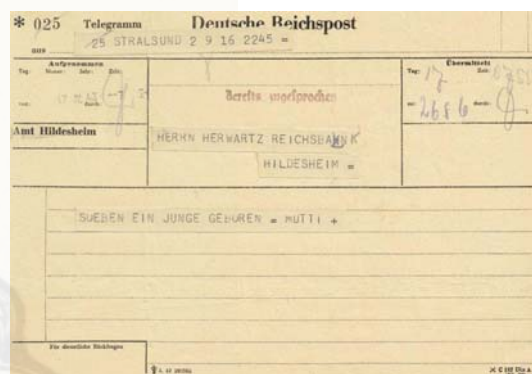 * 025 Telegramm Deutsche Reichspost
25 STRALSUND 2 9 16 2245 =
Aufgenommen
Tag: Monat: Jahr: Zeit:
von: durch:
Amt Hildesheim
Bereits zugesprochen
HERRN HERWARTZ REICHSBANK
HILDESHEIM =
Übermittelt
Tag: 17 Zeit:
an: 2686 durch:
SOEBEN EIN JUNGE GEBOREN = MUTTI +
Für dienstliche Rückfragen